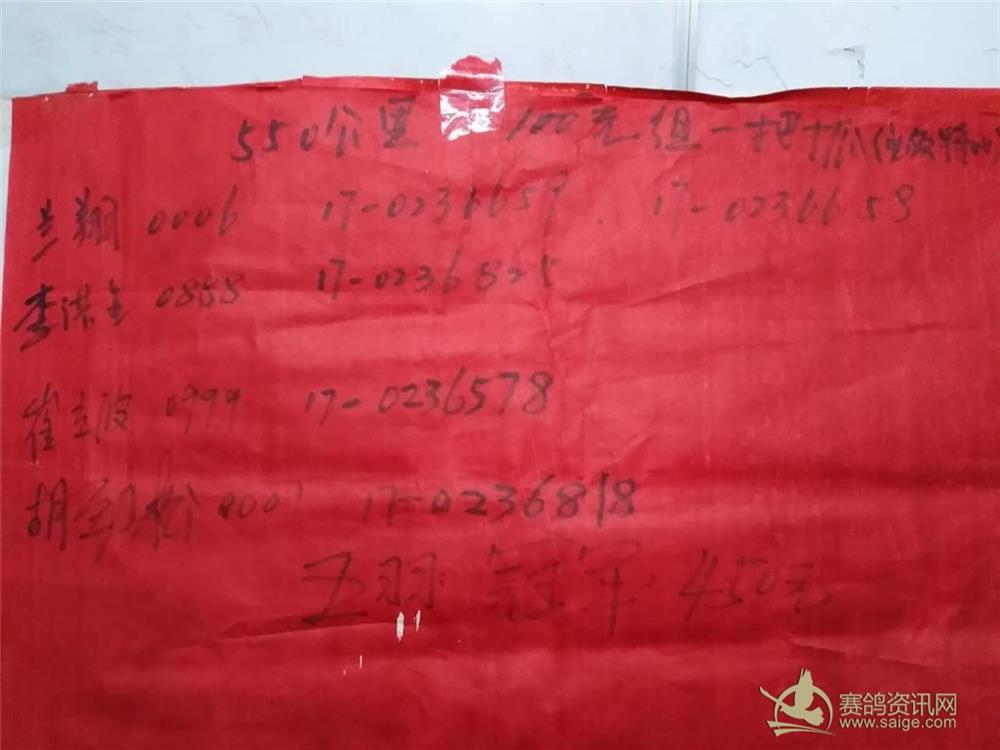 550公里 100元组一把抓
兰翔 0006 17-0236659 17-0236658
李洪金 0888 17-0236825
崔立波 0999 17-0236578
胡劲松 0001 17-0236818
五羽 冠军 450元
赛鸽资讯网
www.saige.com